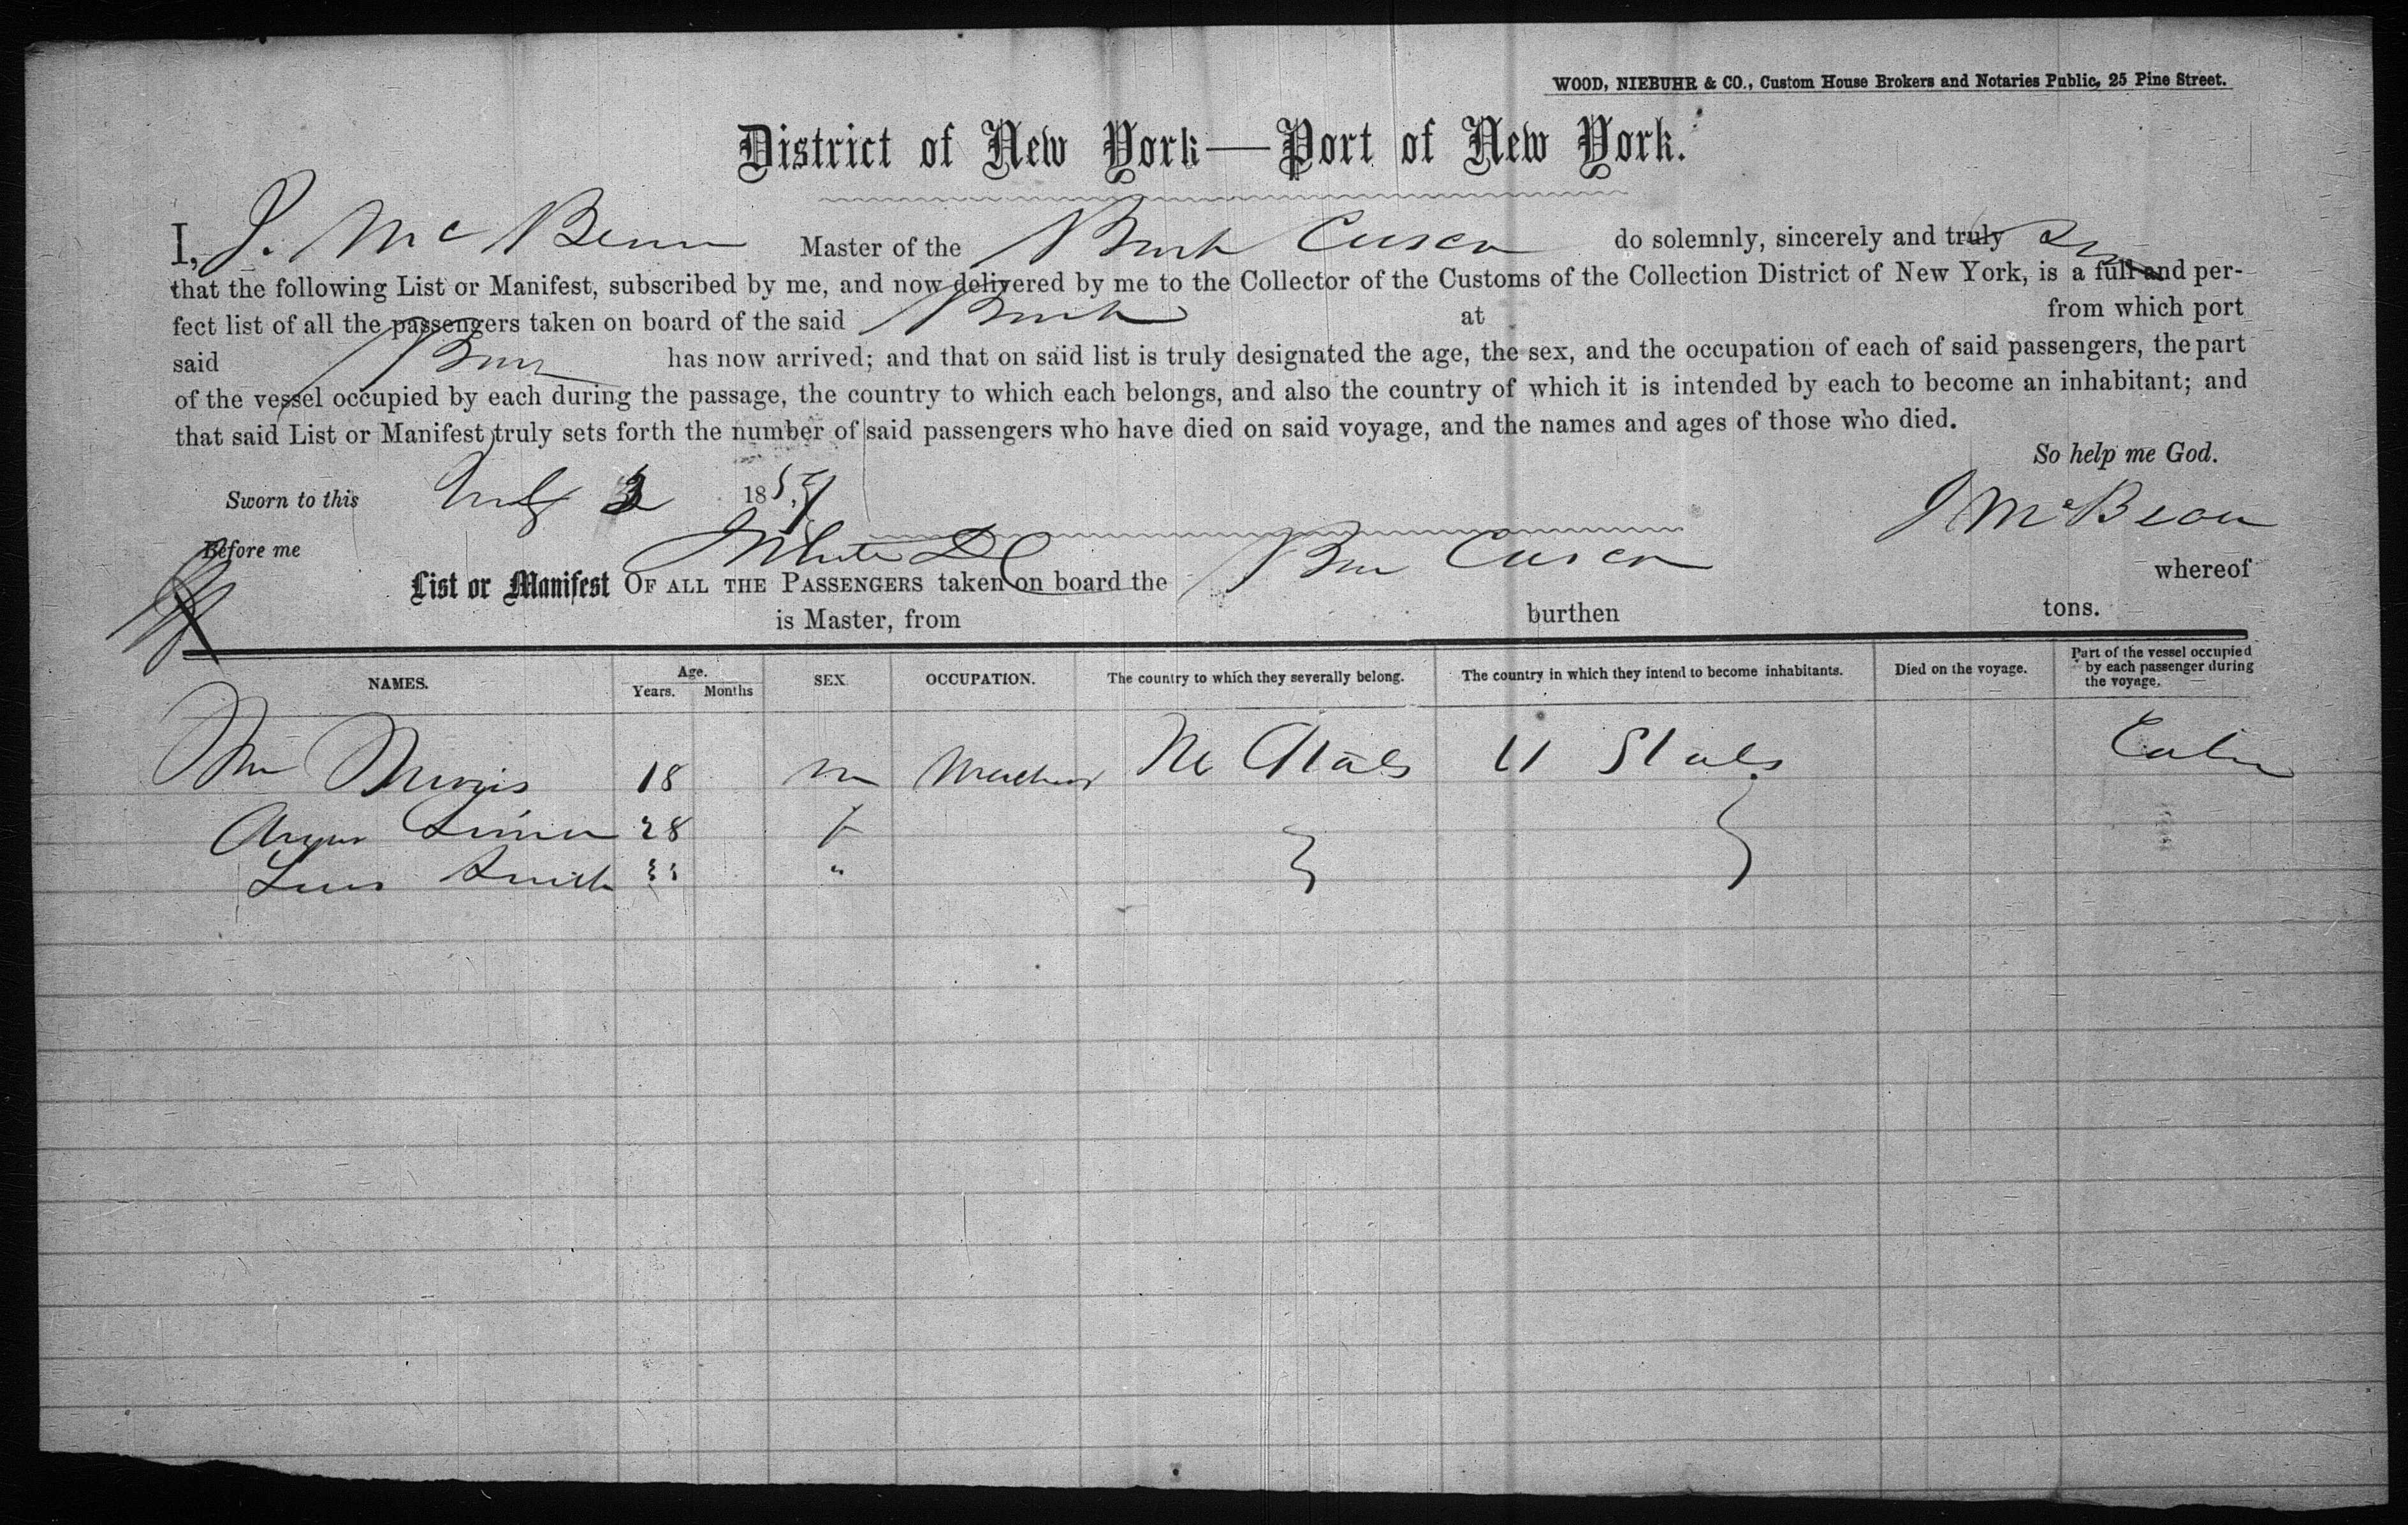 WOOD, NIEBUHR & CO., Custom House Brokers and Notaries Public, 25 Pine Street.
District of New York—Port of New York.
I, J. McBean Master of the Bark Cusco do solemnly, sincerely and truly
that the following List or Manifest, subscribed by me, and now delivered by me to the Collector of the Customs of the Collection District of New York, is a full and per-
fect list of all the passengers taken on board of the said Bark at from which port
said Bark has now arrived; and that on said list is truly designated the age, the sex, and the occupation of each of said passengers, the part
of the vessel occupied by each during the passage, the country to which each belongs, and also the country of which it is intended by each to become an inhabitant; and
that said List or Manifest truly sets forth the number of said passengers who have died on said voyage, and the names and ages of those who died.
So help me God.
Sworn to this 1859
J McBean
Before me
List or Manifest OF ALL THE PASSENGERS taken on board the Bark Cusco whereof
is Master, from burthen tons.
NAMES. Age. Years. Months SEX. OCCUPATION. The country to which they severally belong. The country in which they intend to become inhabitants. Died on the voyage. Part of the vessel occupied by each passenger during the voyage.
18 m U States Cabin
28 f
Smith 33 "